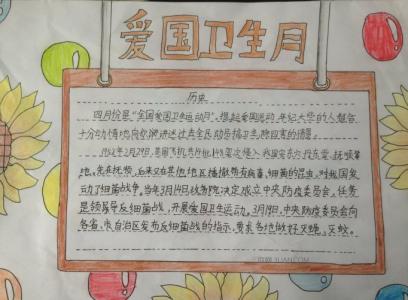 爱国卫生月
历史
四月份是“全国爱国卫生运动月”,提起爱国运动,年纪大些的人都会
十分动情地向你讲述过去全民动员搞卫生,除四害的情景。
1952年2月29日,美国飞机共14批,148架次侵入我国安东,丹东等,抚顺等
地,先在抚顺,后来又在其他地区播撒带有病毒、细菌的昆虫,对我国发
动了细菌战争。当年3月14日政务院决定成立中央防疫委员会,任务
是领导反细菌战,开展爱国卫生运动。3月19日,中央防疫委员会向
各省、市自治区发布反细菌战的指示,要求各地做好灭蝇,灭蚊。
JUAN.COM